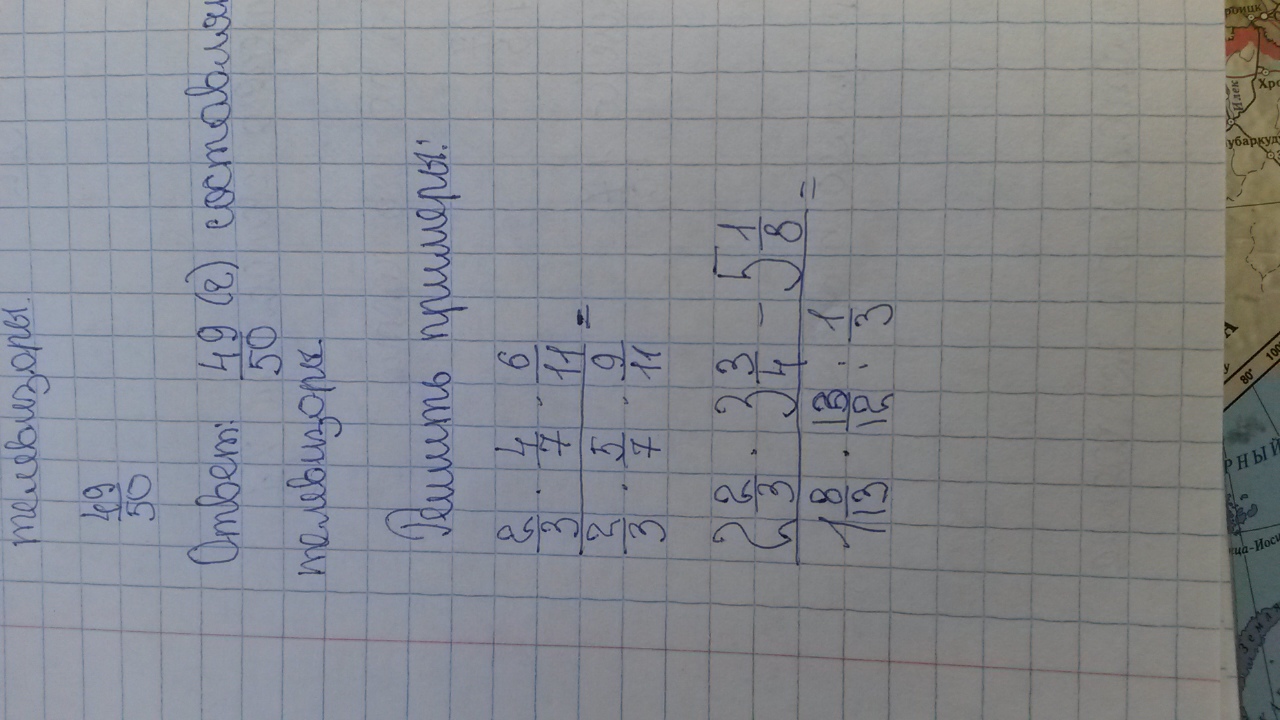 телевизоры.
49/50
Ответ: 49/50 (е) составля
телевизоры.
Решить примеры:
2/3 · 4/7 · 6/11
=
2/3 · 5/7 · 9/11
2 2/3 · 3 3/4 - 5 1/8
=
1 8/13 · 13/12 : 1/3
убаркуду
Илек
Хро
80°
100
РНЫЙ